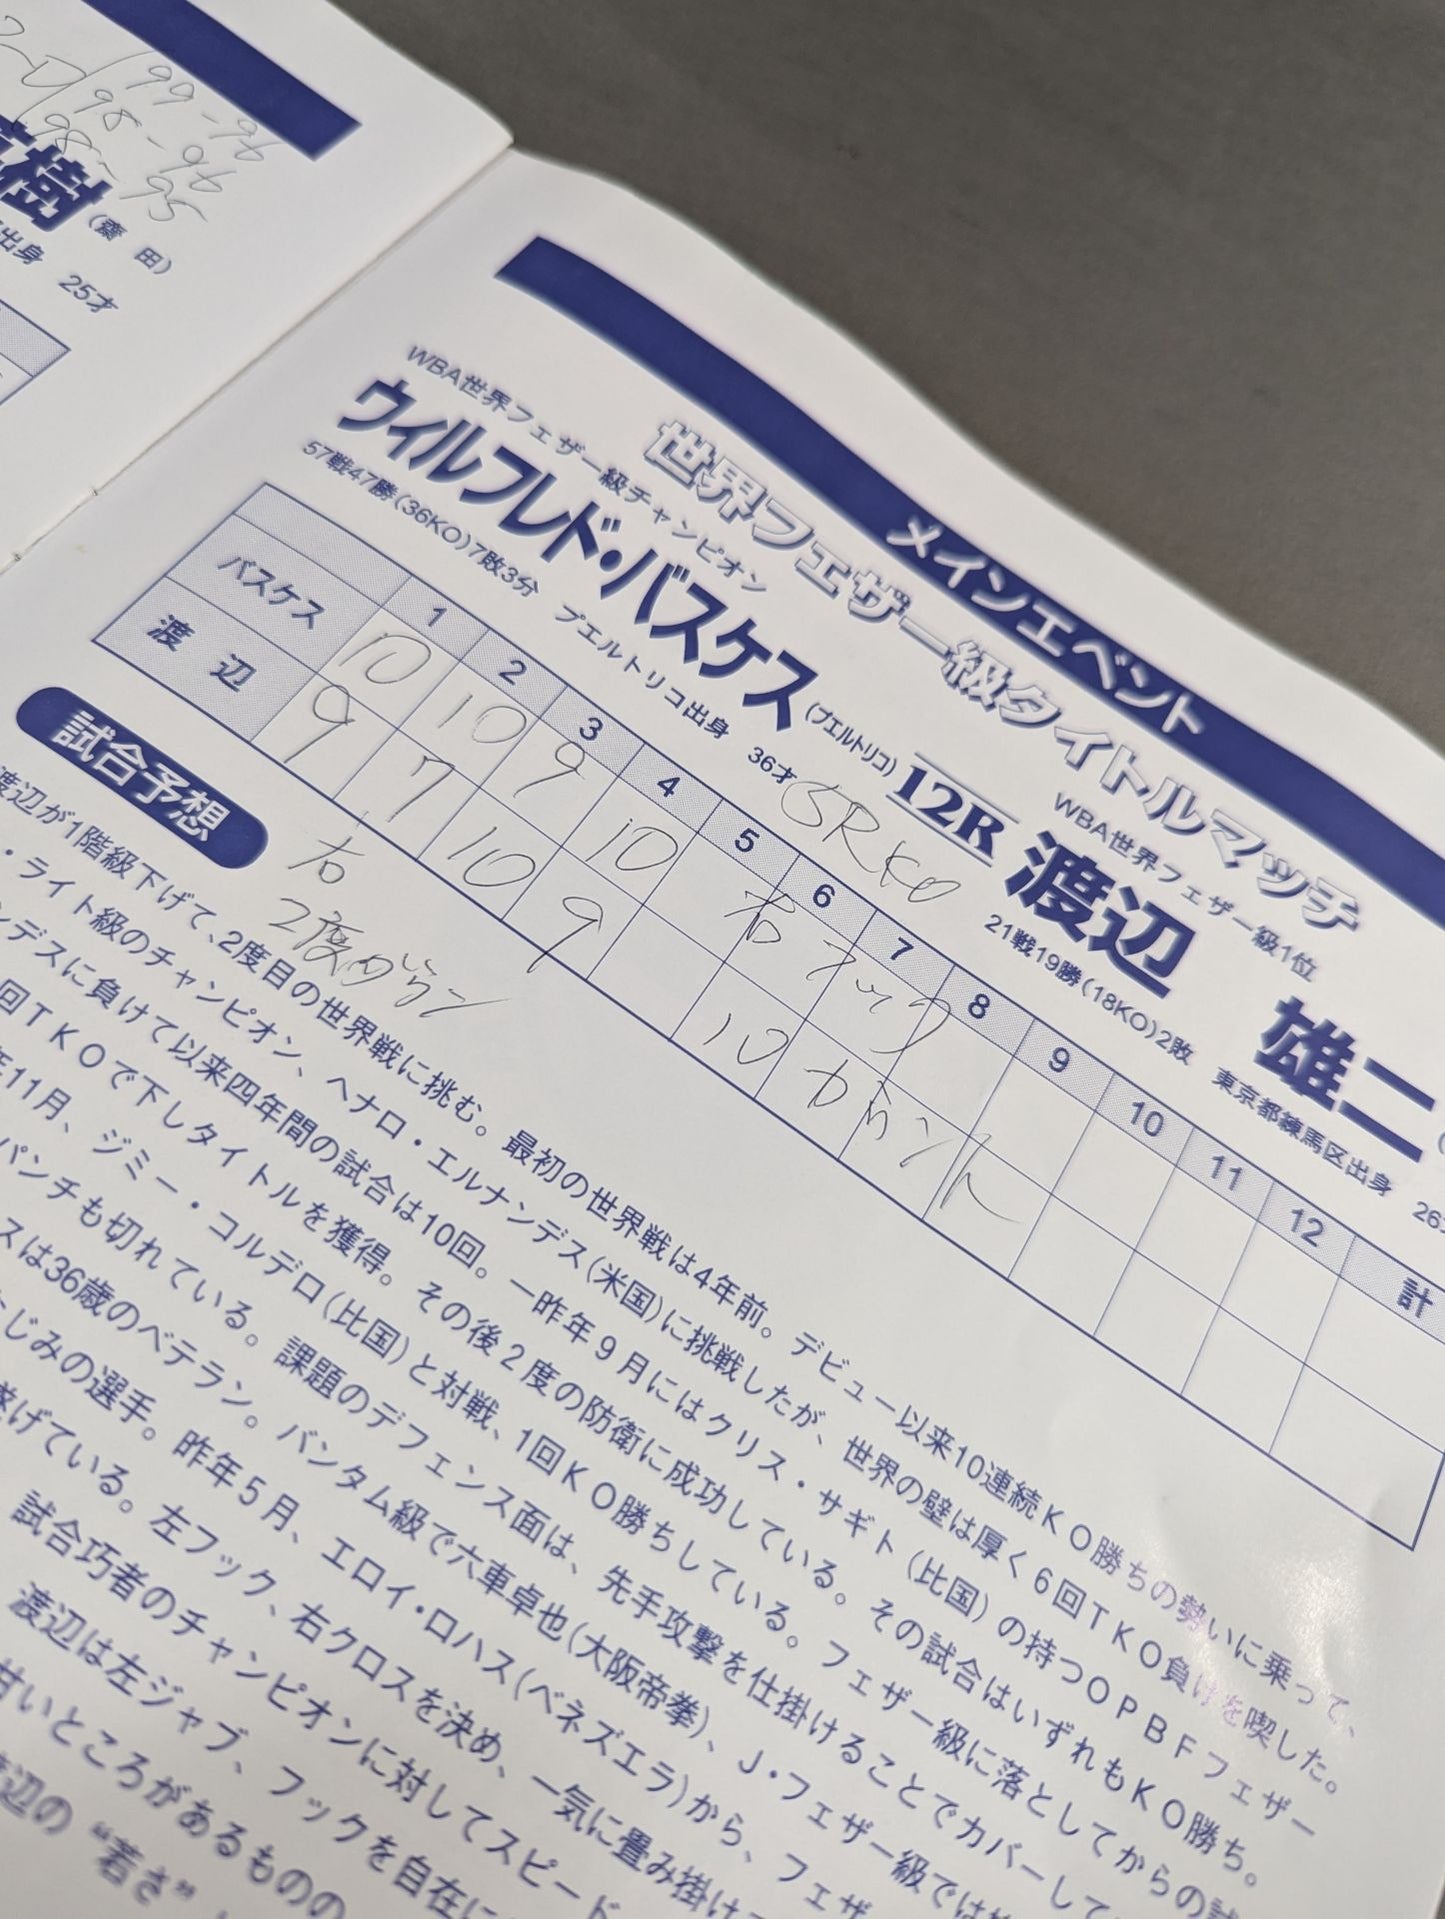 99-96
98-96
98-95
樹 (齋田)
出身 25才
メインエベント
世界フェザー級タイトルマッチ
WBA世界フェザー級チャンピオン
ウィルフレド・バスケス (プエルトリコ)
57戦47勝(36KO)7敗3分 プエルトリコ出身 36才
12R
WBA世界フェザー級1位
渡辺 雄二
21戦19勝(18KO)2敗 東京都練馬区出身
5RKO
1 2 3 4 5 6 7 8 9 10 11 12 計
バスケス 10 10 9 10
渡辺 9 7 10 9
右
2度ダウン
右フック
10カウント
試合予想
渡辺が1階級下げて、2度目の世界戦に挑む。最初の世界戦は4年前。デビュー以来10連続KO勝ちの勢いに乗って、
・ライト級のチャンピオン、ヘナロ・エルナンデス(米国)に挑戦したが、世界の壁は厚く6回TKO負けを喫した。
ンデスに負けて以来四年間の試合は10回。一昨年9月にはクリス・サギト(比国)の持つOPBFフェザー
回TKOで下しタイトルを獲得。その後2度の防衛に成功している。その試合はいずれもKO勝ち。
年11月、ジミー・コルデロ(比国)と対戦、1回KO勝ちしている。フェザー級に落としてからの試
パンチも切れている。課題のディフェンス面は、先手攻撃を仕掛けることでカバーして
スは36歳のベテラン。バンタム級で六車卓也(大阪帝拳)、J・フェザー級では
じみの選手。昨年5月、エロイ・ロハス(ベネズエラ)から、フェザ
遂げている。左フック、右クロスを決め、一気に畳み掛け
試合巧者のチャンピオンに対してスピード
渡辺は左ジャブ、フックを自在に
甘いところがあるものの
辺の“若さ”